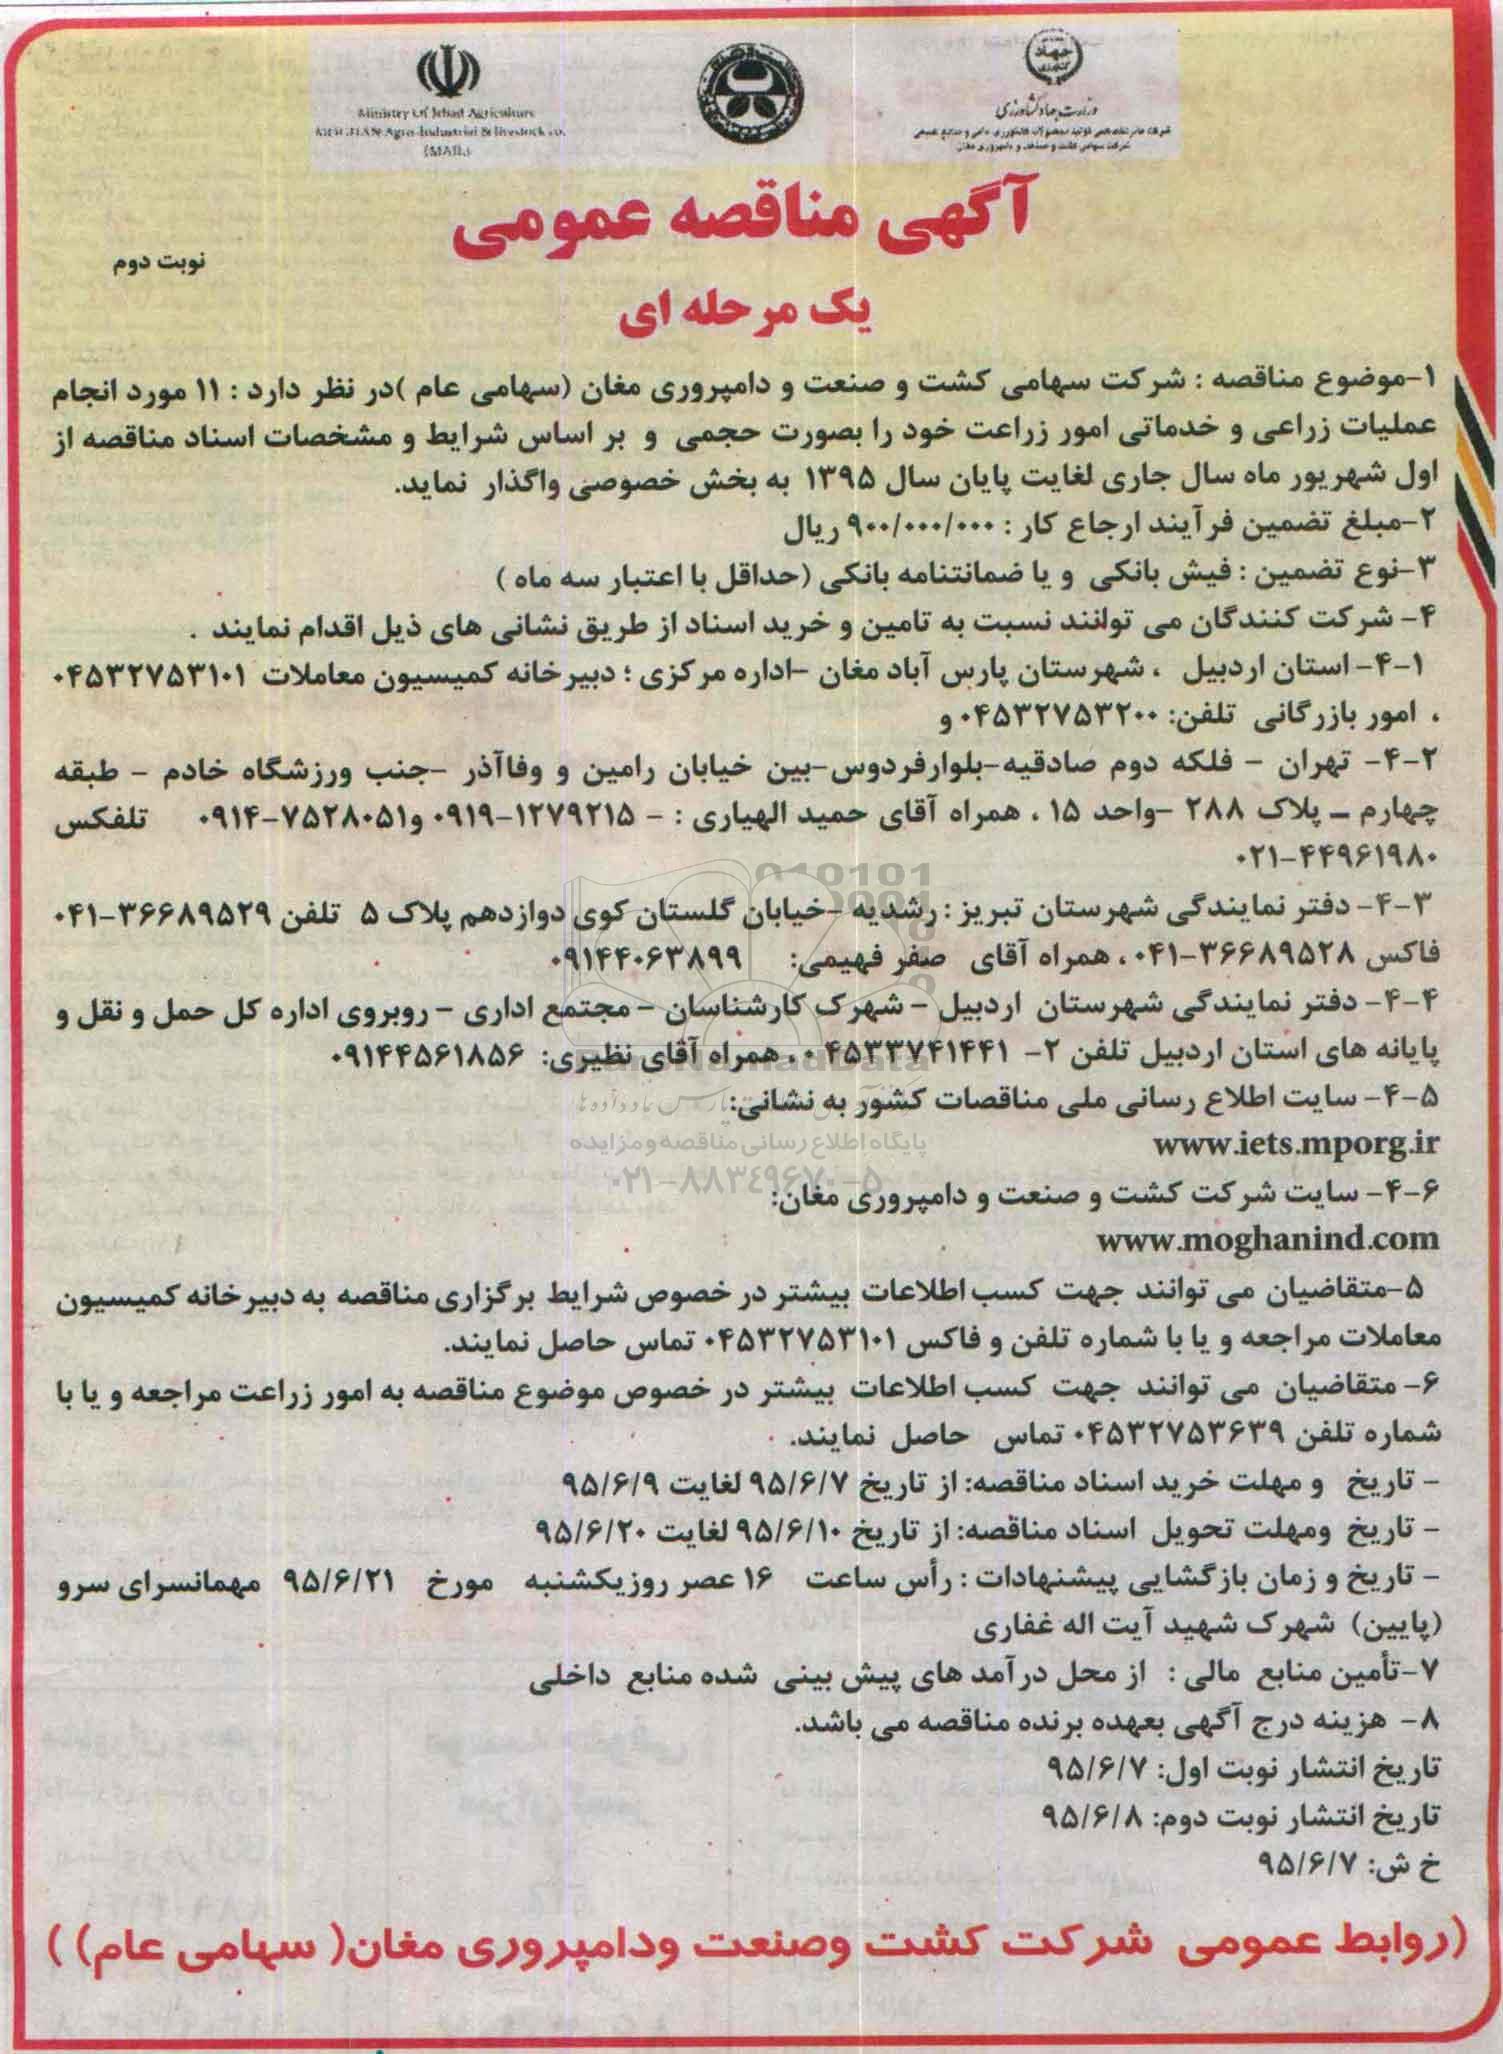 جهاد
وزارت جهاد کشاورزی
شرکت سهامی کشت و صنعت و دامپروری مغان
Ministry Of Jehad Agriculture
MOGHAN Agro-Industrial & livestock co.
آگهی مناقصه عمومی
نوبت دوم
یک مرحله ای
۱-موضوع مناقصه : شرکت سهامی کشت و صنعت و دامپروری مغان (سهامی عام )در نظر دارد : ۱۱ مورد انجام
عملیات زراعی و خدماتی امور زراعت خود را بصورت حجمی و بر اساس شرایط و مشخصات اسناد مناقصه از
اول شهریور ماه سال جاری لغایت پایان سال ۱۳۹۵ به بخش خصوصی واگذار نماید.
۲-مبلغ تضمین فرآیند ارجاع کار : ۹۰۰/۰۰۰/۰۰۰ ریال
۳-نوع تضمین : فیش بانکی و یا ضمانتنامه بانکی (حداقل با اعتبار سه ماه )
۴- شرکت کنندگان می توانند نسبت به تامین و خرید اسناد از طریق نشانی های ذیل اقدام نمایند .
۴-۱- استان اردبیل ، شهرستان پارس آباد مغان -اداره مرکزی ؛ دبیرخانه کمیسیون معاملات ۰۴۵۳۲۷۵۳۱۰۱
، امور بازرگانی تلفن: ۰۴۵۳۲۷۵۳۲۰۰ و
۴-۲- تهران - فلکه دوم صادقیه-بلوارفردوس-بین خیابان رامین و وفاآذر -جنب ورزشگاه خادم - طبقه
چهارم – پلاک ۲۸۸ -واحد ۱۵ ، همراه آقای حمید الهیاری : - ۰۹۱۹-۱۲۷۹۲۱۵ و۰۹۱۴-۷۵۲۸۰۵۱ تلفکس
۰۲۱-۴۴۹۶۱۹۸۰
۴-۳- دفتر نمایندگی شهرستان تبریز : رشدیه -خیابان گلستان کوی دوازدهم پلاک ۵ تلفن ۰۴۱-۳۶۶۸۹۵۲۹
فاکس ۰۴۱-۳۶۶۸۹۵۲۸ ، همراه آقای صفر فهیمی: ۰۹۱۴۴۰۶۳۸۹۹
۴-۴- دفتر نمایندگی شهرستان اردبیل - شهرک کارشناسان - مجتمع اداری - روبروی اداره کل حمل و نقل و
پایانه های استان اردبیل تلفن ۲- ۰۴۵۳۳۷۴۱۴۴۱ ، همراه آقای نظیری: ۰۹۱۴۴۵۶۱۸۵۶
۴-۵- سایت اطلاع رسانی ملی مناقصات کشور به نشانی:
www.iets.mporg.ir
پایگاه اطلاع رسانی مناقصه و مزایده
۰۲۱-۸۸۳۴۹۶۷۰-۵
۴-۶- سایت شرکت کشت و صنعت و دامپروری مغان:
www.moghanind.com
۵-متقاضیان می توانند جهت کسب اطلاعات بیشتر در خصوص شرایط برگزاری مناقصه به دبیرخانه کمیسیون
معاملات مراجعه و یا با شماره تلفن و فاکس ۰۴۵۳۲۷۵۳۱۰۱ تماس حاصل نمایند.
۶- متقاضیان می توانند جهت کسب اطلاعات بیشتر در خصوص موضوع مناقصه به امور زراعت مراجعه و یا با
شماره تلفن ۰۴۵۳۲۷۵۳۶۳۹ تماس حاصل نمایند.
- تاریخ و مهلت خرید اسناد مناقصه: از تاریخ ۹۵/۶/۷ لغایت ۹۵/۶/۹
- تاریخ ومهلت تحویل اسناد مناقصه: از تاریخ ۹۵/۶/۱۰ لغایت ۹۵/۶/۲۰
- تاریخ و زمان بازگشایی پیشنهادات : رأس ساعت ۱۶ عصر روزیکشنبه مورخ ۹۵/۶/۲۱ مهمانسرای سرو
(پایین) شهرک شهید آیت اله غفاری
۷-تأمین منابع مالی : از محل درآمد های پیش بینی شده منابع داخلی
۸- هزینه درج آگهی بعهده برنده مناقصه می باشد.
تاریخ انتشار نوبت اول: ۹۵/۶/۷
تاریخ انتشار نوبت دوم: ۹۵/۶/۸
خ ش: ۹۵/۶/۷
(روابط عمومی شرکت کشت وصنعت ودامپروری مغان( سهامی عام) )